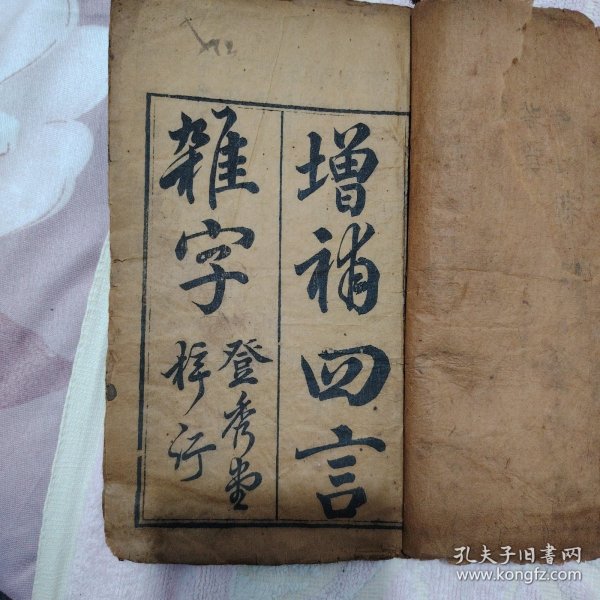 增補四言
雜字
登秀堂
梓行
孔夫子旧书网
www.kongfz.com